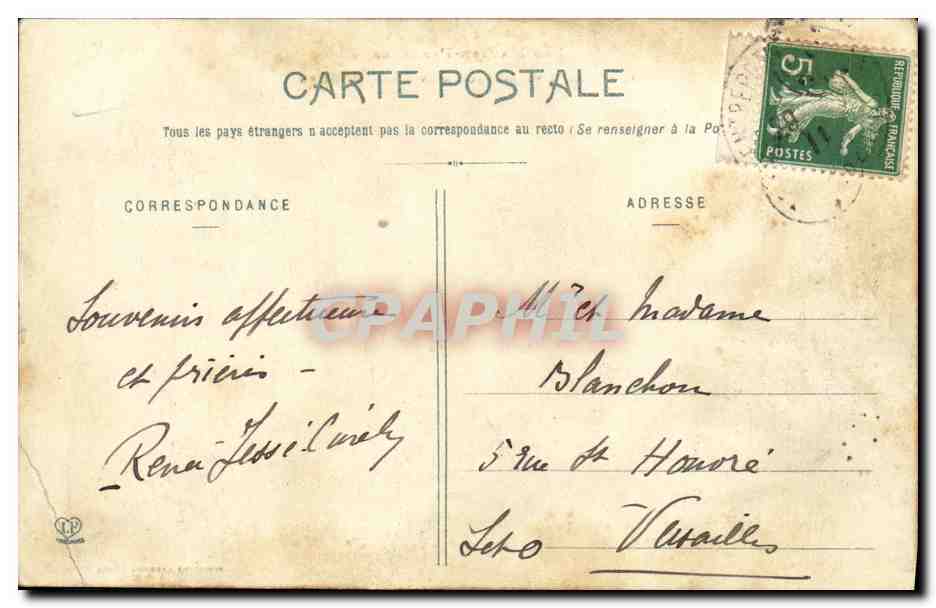 CARTE POSTALE
Tous les pays étrangers n'acceptent pas la correspondance au recto (Se renseigner à la Po
RÉPUBLIQUE FRANÇAISE
5
POSTES
11
CORRESPONDANCE
ADRESSE
Souvenirs affectueux
et prières –
René Jessé
Mr et Madame
Blanchon
5 rue St Honoré
Versailles
S et O
CPAPHIL